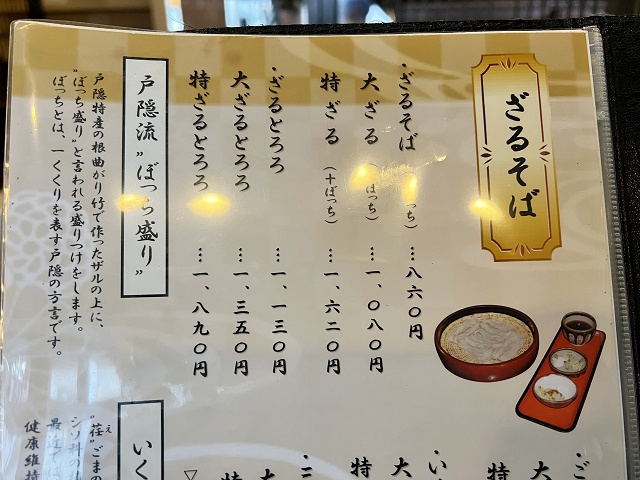 ざるそば
・ざるそば …八六〇円
大ざる …一、〇八〇円
特ざる（十ぼっち） …一、六二〇円
・ざるとろろ …一、一三〇円
大ざるとろろ …一、三五〇円
特ざるとろろ …一、八九〇円
戸隠流〝ぼっち盛り〟
戸隠特産の根曲がり竹で作ったザルの上に、
〝ぼっち盛り〟と言われる盛りつけをします。
ぼっちとは、一くくりを表す戸隠の方言です。
・ご
大
特
・い
大
特
大
特
いく
〝荏〟ごまの
え
シソ科の
健康維持